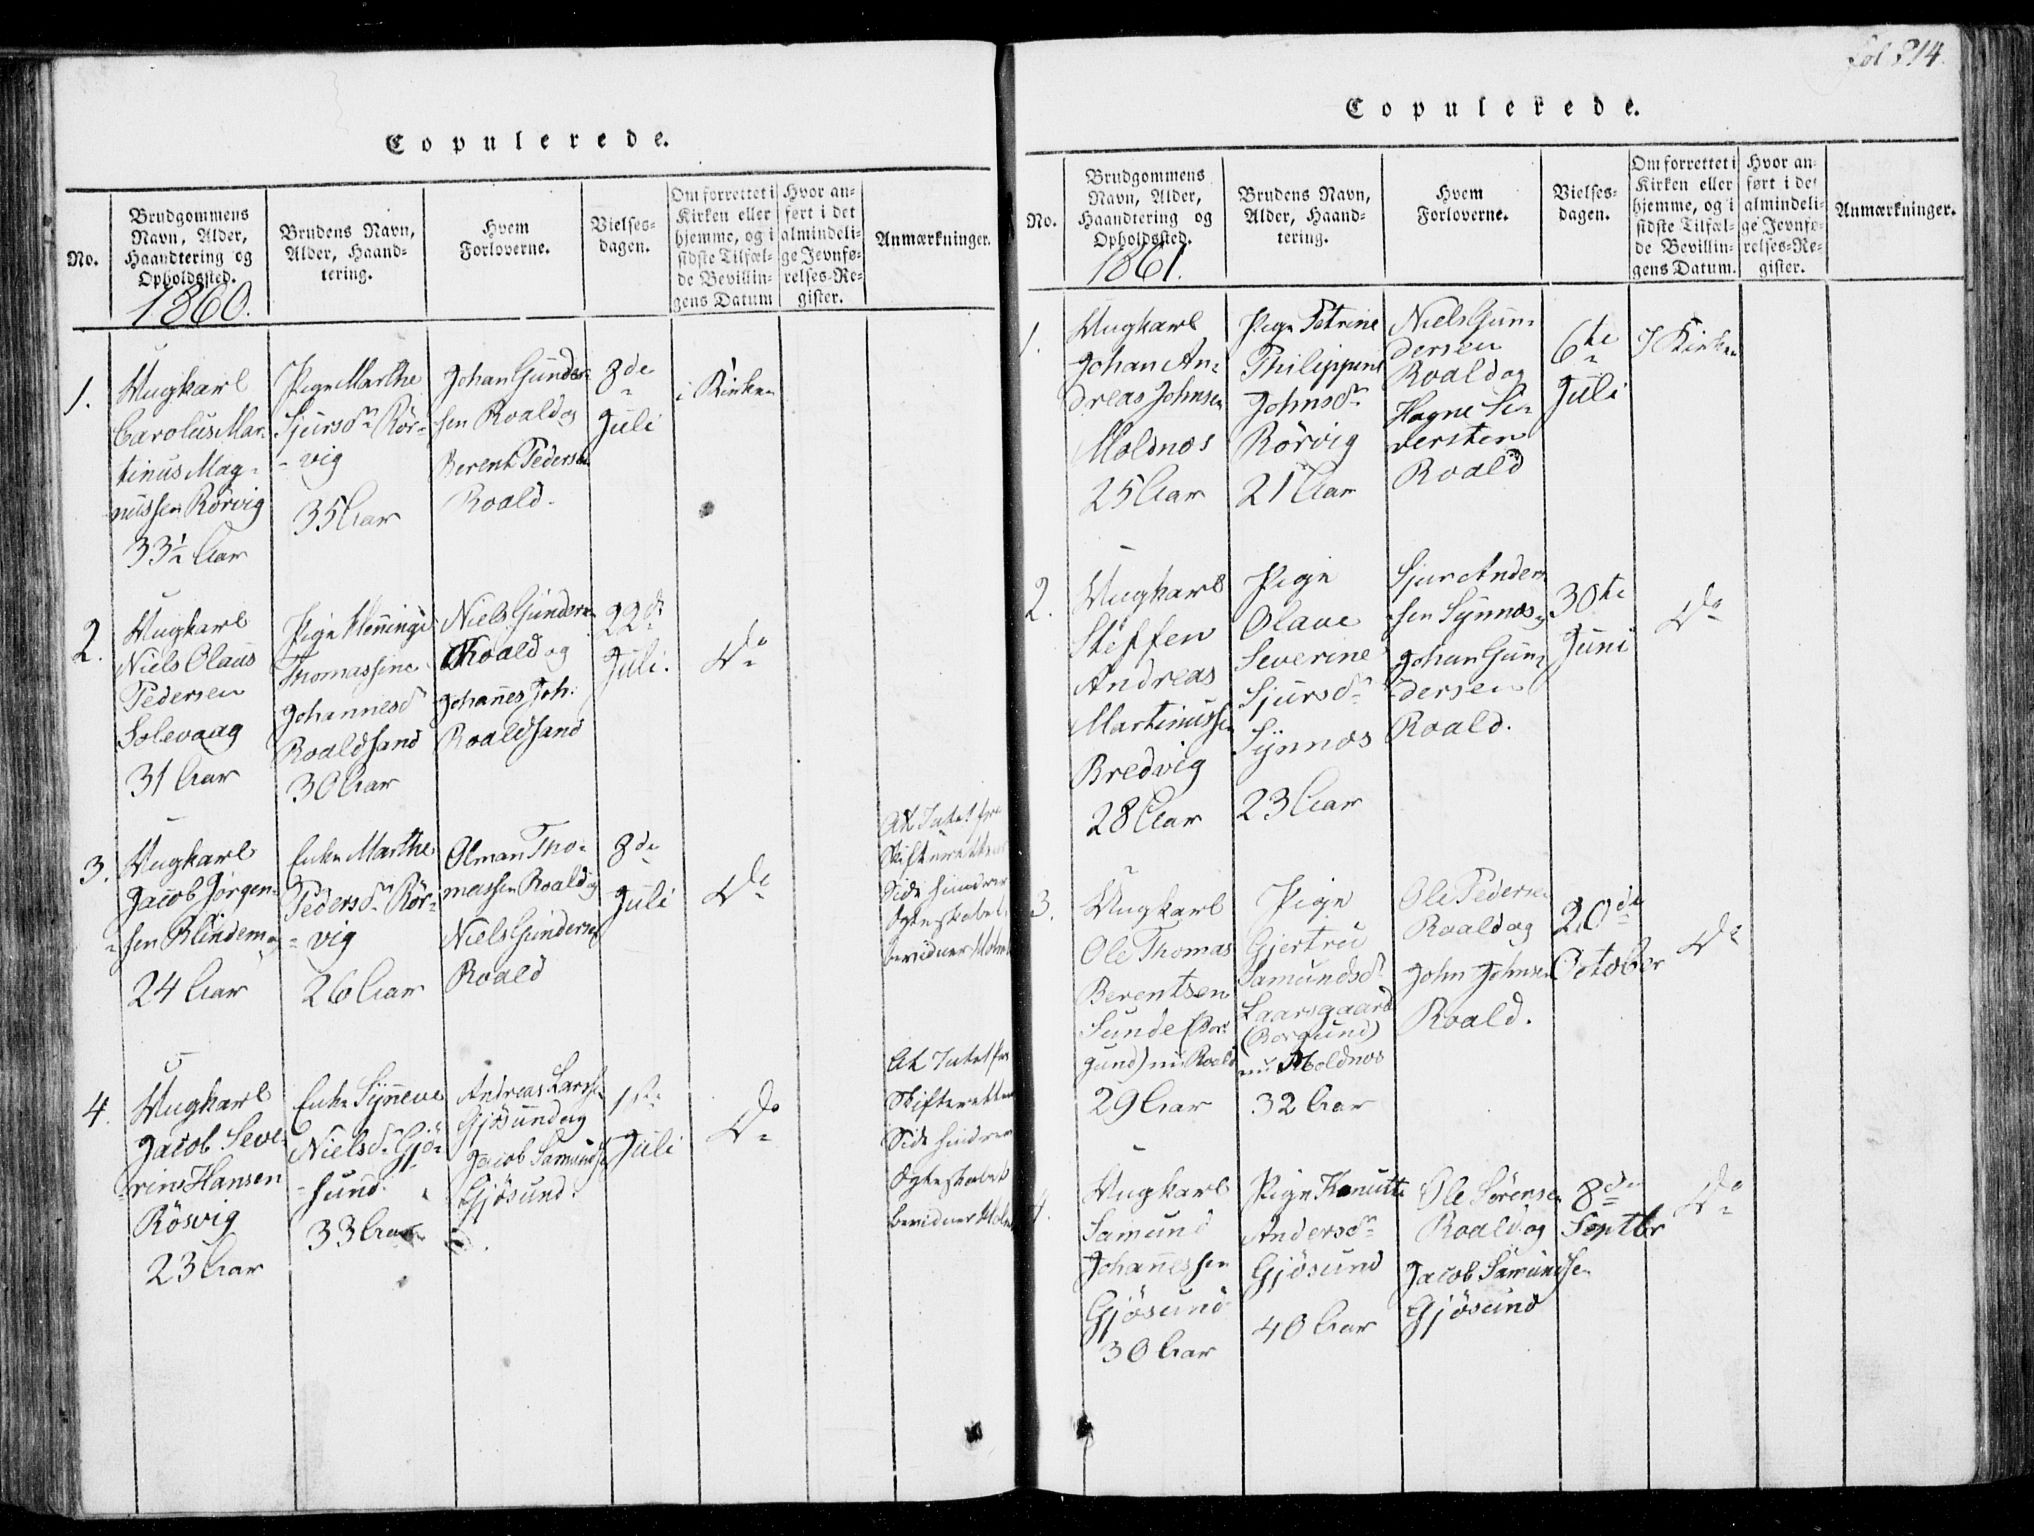 Copulerede.
No.
Brudgommens
Navn, Alder,
Haandtering og
Opholdssted.
Brudens Navn,
Alder, Haand-
tering.
Hvem
Forloverne.
Vielses-
dagen.
Om forrettet i
Kirken eller
hjemme, og i
sidste Tilfæl-
de Bevillin-
gens Datum
Hvor an-
ført i det
almindeli-
ge Jevnfø-
relses-Re-
gister.
Anmærkninger.
1860.
1.
Ungkarl
Carolus Mar-
tinus Mag-
nussen Rörvig
33½ Aar
Pige Marthe
Sjursdr Rör-
vig
35 Aar
Johan Gunder-
sen Roald og
Berent Pedersen
Roald.
8de
Juli
i Kirken
2.
Ungkarl
Niels Olaus
Pedersen
Solevaag
31 Aar
Pige Henninge
Thomassine
Johannesd
Roaldsand
30 Aar
Niels Gundersen
Roald og
Johannes Joh:
Roaldsand
22de
Juli.
Do
3.
Ungkarl
Jacob Jörgen-
sen Blindem
24 Aar
Enke Marthe
Pedersdr Rör-
vig
26 Aar
Olman Tho-
massen Roald og
Niels Gundersen
Roald
8de
Juli
Do
At Intet fra
Skifterettens
Side hindrer
Ægteskabet,
bevidner Holm
4.
Ungkarl
Jacob Seve-
rin Hansen
Rösvig
23 Aar
Enke Synneve
Nielsdr Gjö-
sund.
33 Aar
Andreas Larss.
Gjösund og
Jacob Samundse
Gjösund.
1ste
Juli
Do
At Intet fra
Skifteretten
Side hindrer
Ægteskabet
bevidner Holm
Fol 214.
Copulerede.
No.
Brudgommens
Navn, Alder,
Haandtering og
Opholdssted.
Brudens Navn,
Alder, Haand-
tering.
Hvem
Forloverne.
Vielses-
dagen.
Om forrettet i
Kirken eller
hjemme, og i
sidste Tilfæl-
de Bevillin-
gens Datum.
Hvor an-
ført i det
almindeli-
ge Jevnfø-
relses-Re-
gister.
Anmærkninger.
1861.
1.
Ungkarl
Johan An-
dreas Johnsen
Moldnæs
25 Aar
Pige Petrine
Philippine
Johnsdr
Rörvig
21 Aar
Niels Gun-
dersen
Roald og
Hagne Si-
versten
Roald
6te
Juli
I Kirken
2.
Ungkarl
Steffen
Andreas
Martinussen
Bredvig
28 Aar
Pige
Olave
Severine
Sjursdr
Synnæs
23 Aar
Sjur Ander-
sen Synnæs,
Johan Gun-
dersen
Roald.
30te
Juni
Do
3.
Ungkarl
Ole Thomas
Berentsen
Sunde (Bor-
gund) nu Roald
29 Aar
Pige
Gjertru
Samundsdr
Laarsgaard
(Borgund)
nu Moldnæs
32 Aar
Ole Pedersen
Roald og
John Johnsen
Roald.
20de
October
Do
4.
Ungkarl
Samund
Johannessen
Gjösund
30 Aar
Pige Knutte
Andersdr
Gjösund
40 Aar
Ole Sörensen
Roald og
Jacob Samundse
Gjösund
8de
Septbr
Do